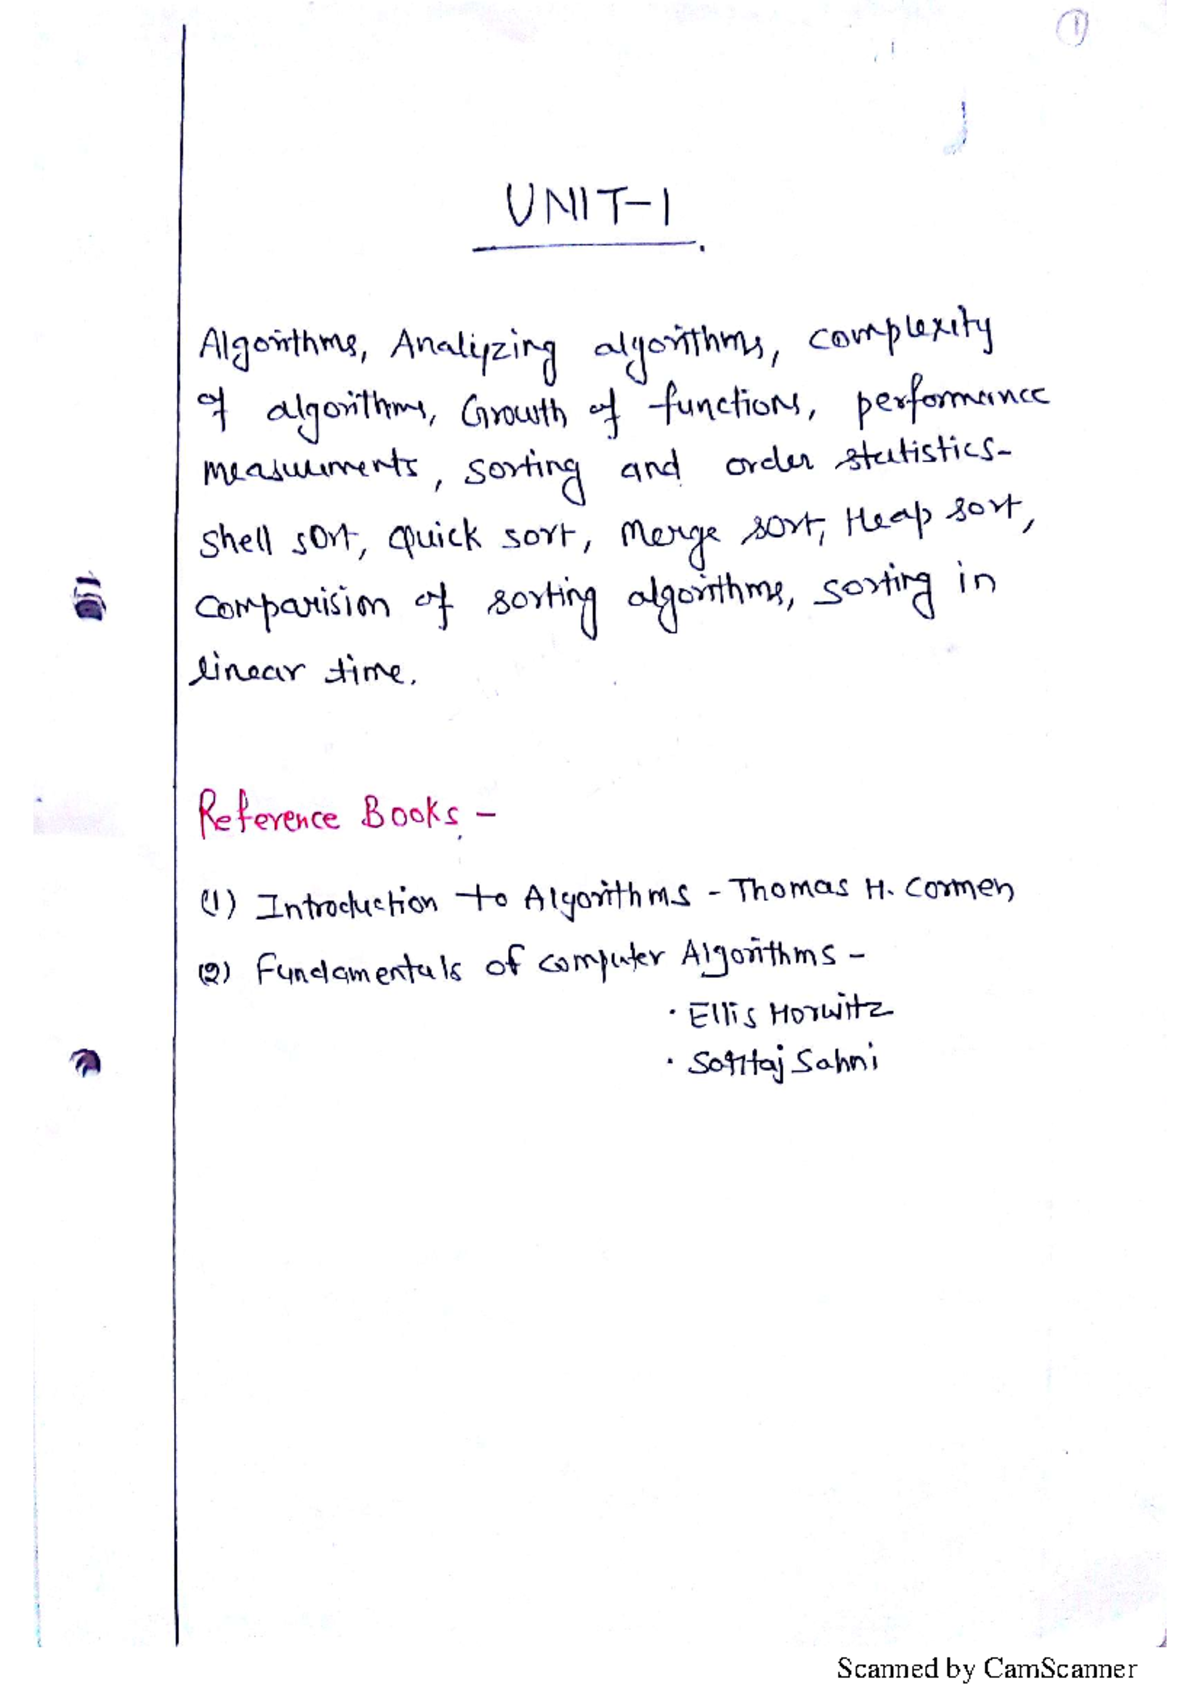 1
UNIT-1
Algorithms, Analyzing algorithms, complexity
of algorithms, Growth of functions, performance
measurements, sorting and order statistics-
shell sort, quick sort, Merge sort, Heap sort,
comparision of sorting algorithms, sorting in
linear time.
Reference Books -
(1) Introduction to Algorithms - Thomas H. Cormen
(2) Fundamentals of computer Algorithms -
• Ellis Horwitz
• Sartaj Sahni
Scanned by CamScanner